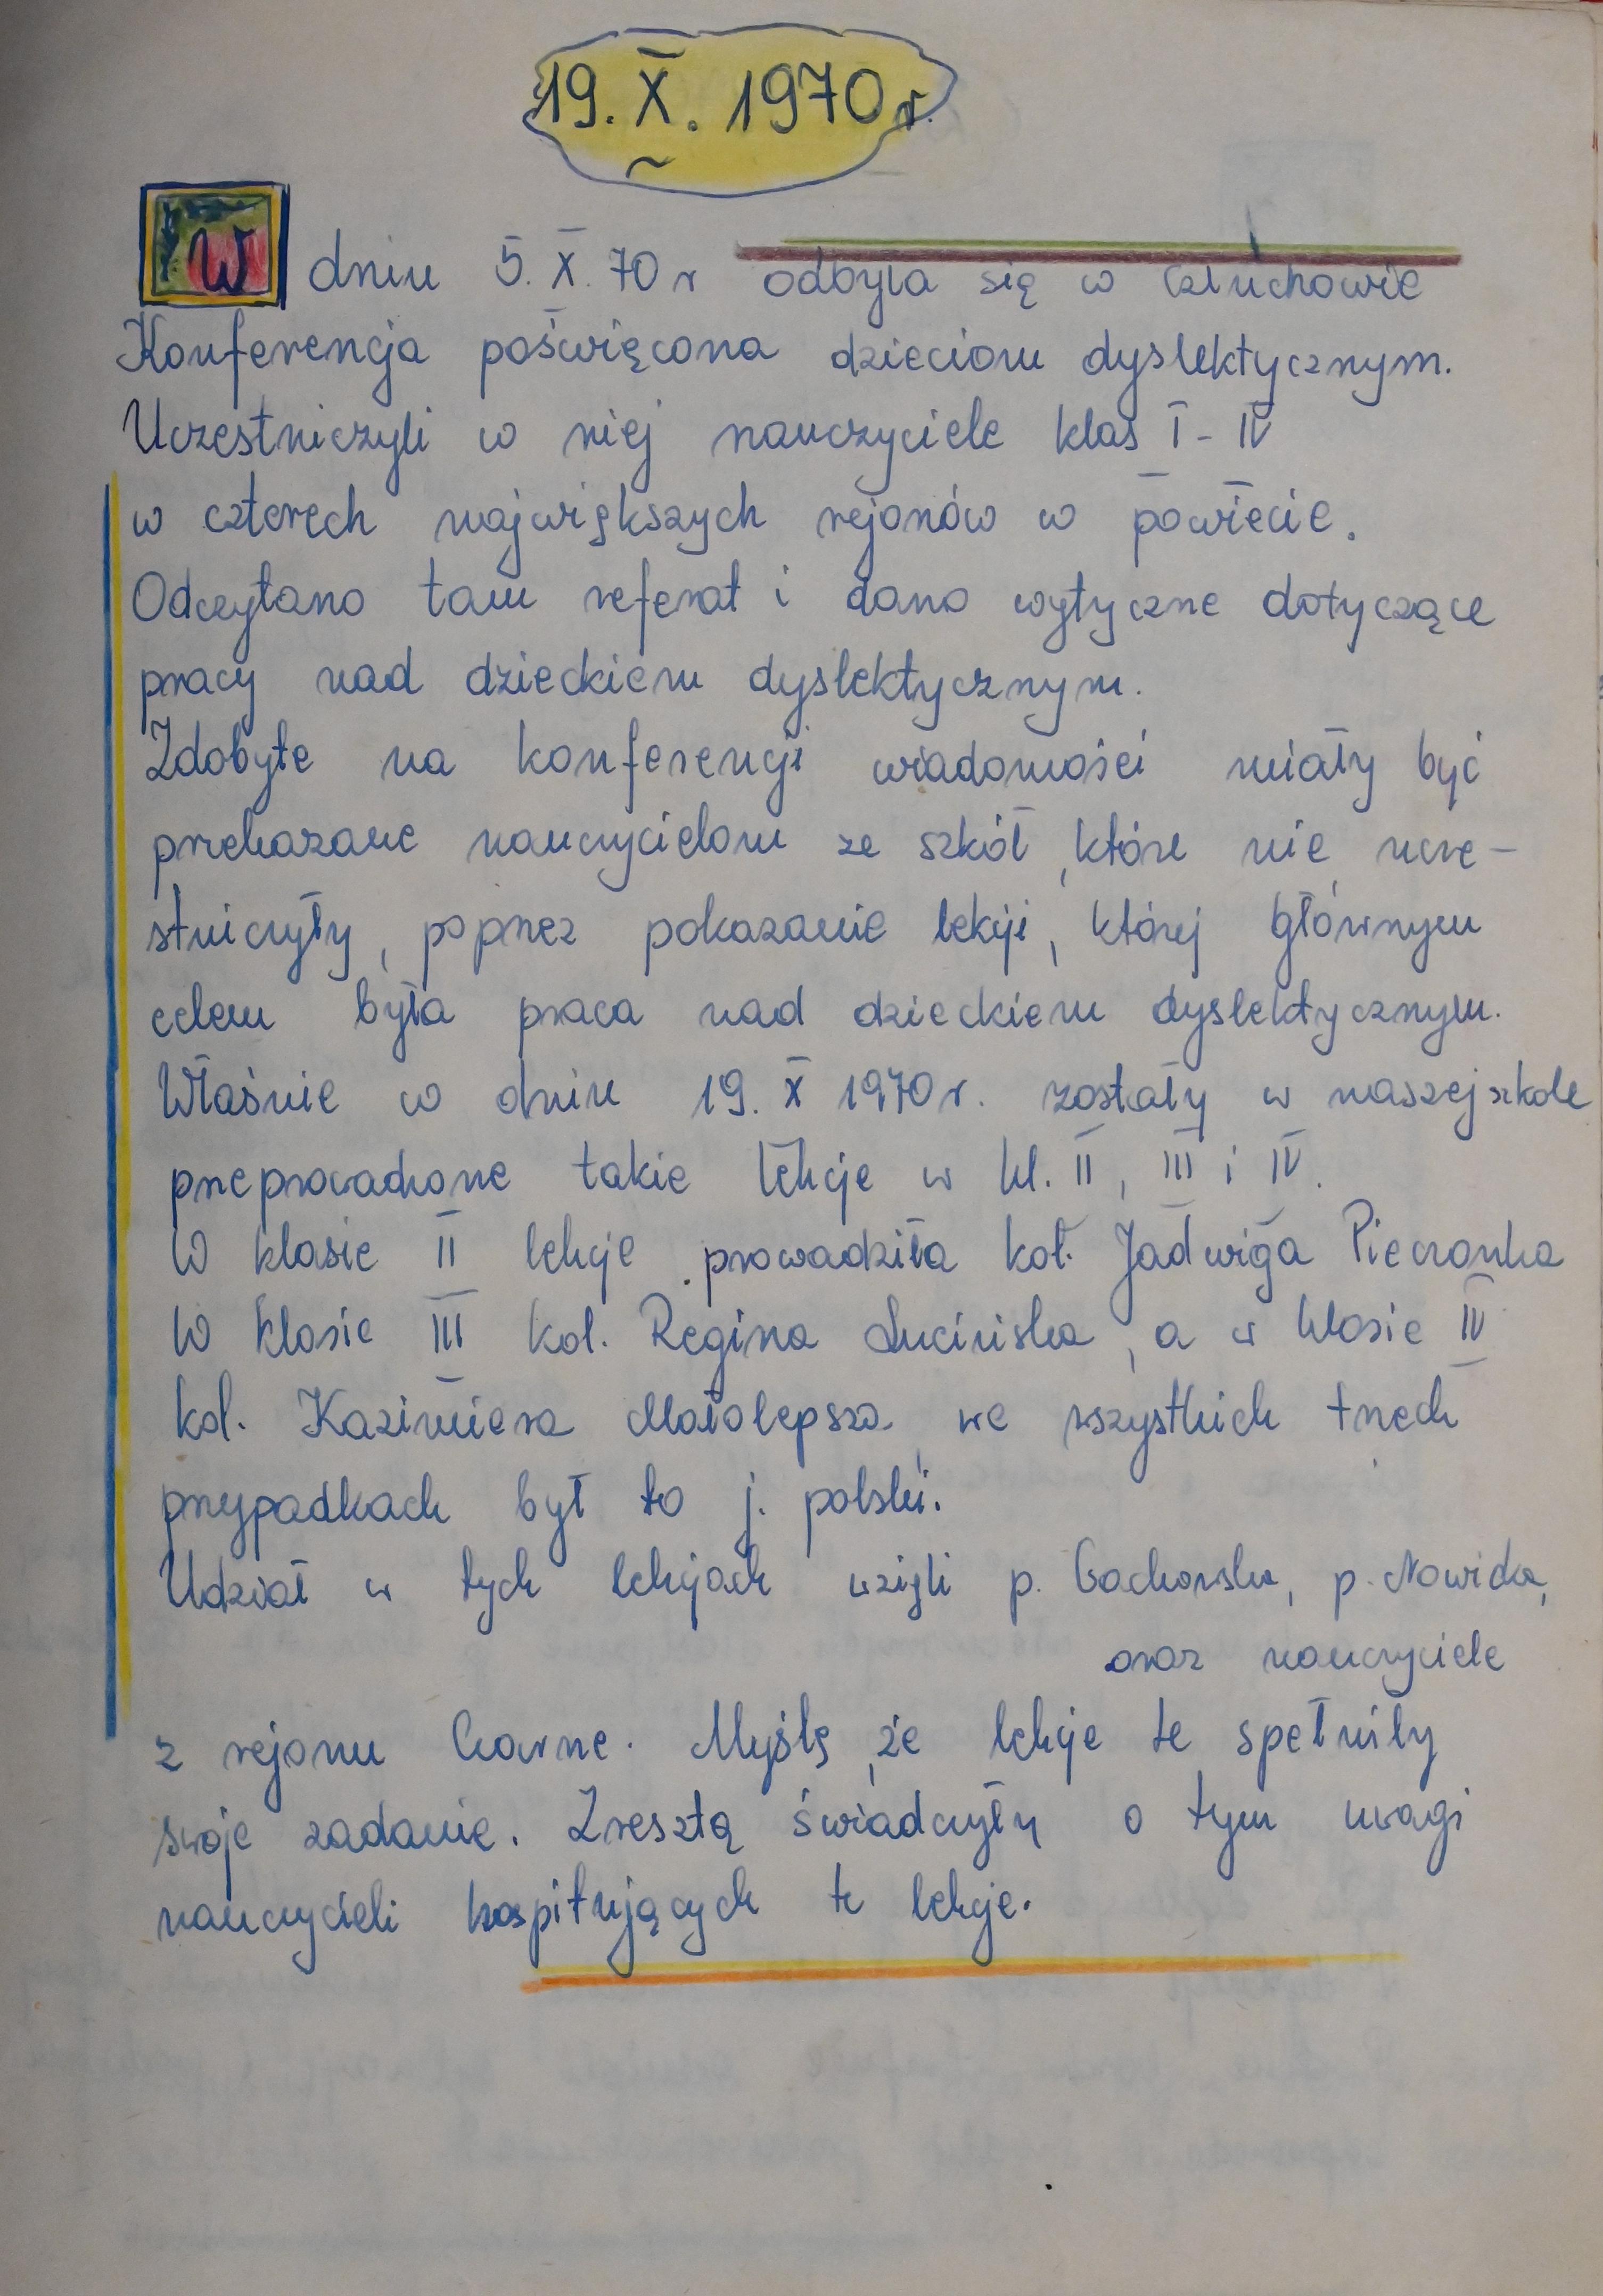 19. X. 1970 r.
W dniu 5. X. 70 r odbyła się w Człuchowie
Konferencja poświęcona dzieciom dyslektycznym.
Uczestniczyli w niej nauczyciele klas I - IV
w czterech największych rejonów w powiecie.
Odczytano tam referat i dano wytyczne dotyczące
pracy nad dzieckiem dyslektycznym.
Zdobyte na konferencji wiadomości miały być
przekazane nauczycielom ze szkół, które nie ucze-
stniczyły, poprzez pokazanie lekcji, której głównym
celem była praca nad dzieckiem dyslektycznym.
Właśnie w dniu 19. X 1970 r. zostały w naszej szkole
przeprowadzone takie lekcje w kl. II, III i IV.
W klasie II lekcje prowadziła kol. Jadwiga Pieczonka
W klasie III kol. Regina Lucińska, a w klasie IV
kol. Kazimiera Małolepsza, we wszystkich trzech
przypadkach był to j. polski.
Udział w tych lekcjach wzięli p. p. Nowicka,
oraz nauczyciele
z rejonu Czarne. Myślę, że lekcje te spełniły
swoje zadanie. Zresztą świadczyły o tym uwagi
nauczycieli hospitujących te lekcje.